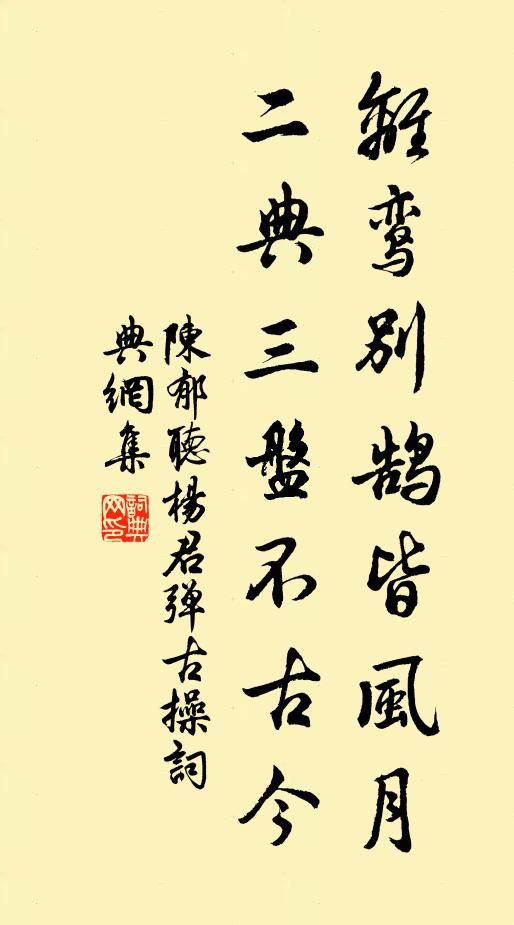 離鸾別鹄皆風月
二典三盤不古今
陳郁聴楊君弹古操詞
典網集
詞典
网印